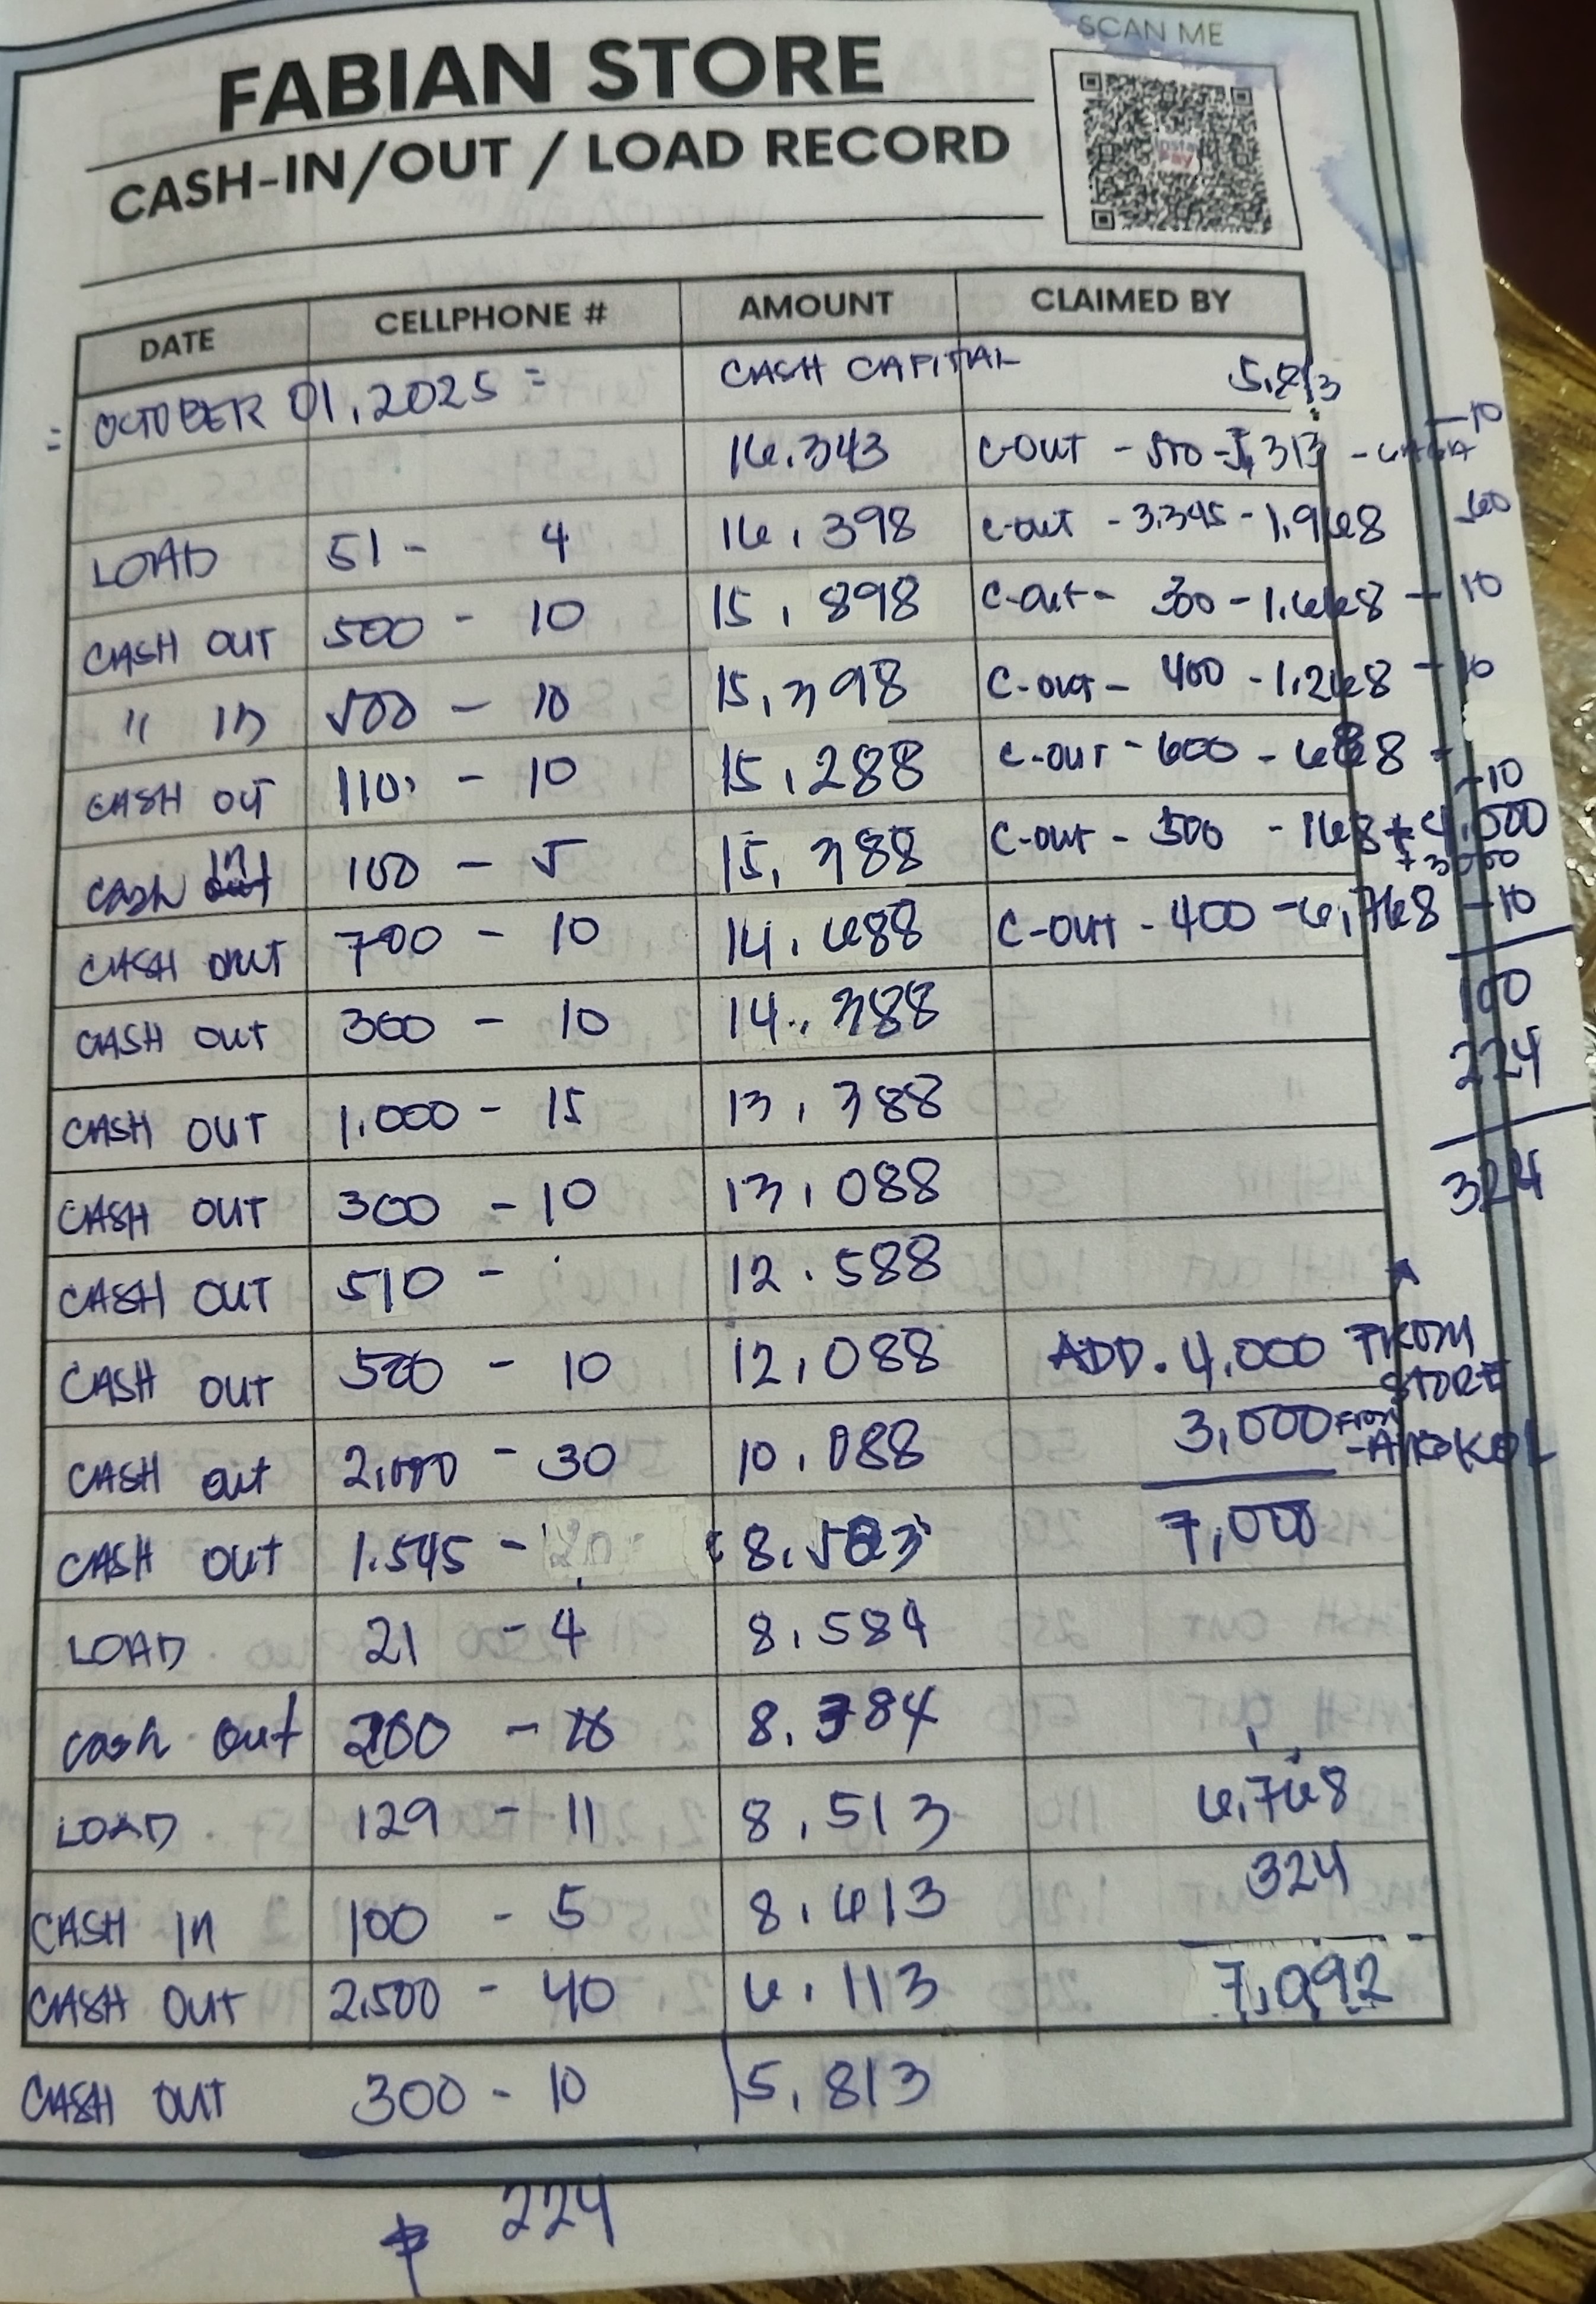 SCAN ME
FABIAN STORE
CASH-IN/OUT / LOAD RECORD
Insta Pay
DATE CELLPHONE # AMOUNT CLAIMED BY
= OCTOBER 01, 2025 = CASH CAPITAL 5,813
16,343 C-OUT - 500 - 5,313 - 10
LOAD 51 - 4 16,398 C-out - 3,345 - 1,968
CASH OUT 500 - 10 15,898 C-out - 300 - 1,668 - 10
" In 500 - 10 15,398 C-out - 400 - 1,268 - 10
CASH OUT 110 - 10 15,288 C-OUT - 600 - 668 -
Cash In 100 - 5 15,388 C-out - 500 - 168 + 4,000 - 10
+ 3000
CASH OUT 700 - 10 14,688 C-OUT - 400 - 6,768 - 10
CASH OUT 300 - 10 14,388 100
224
CASH OUT 1,000 - 15 13,388
CASH OUT 300 - 10 13,088 324
CASH OUT 510 - 12,588
CASH OUT 500 - 10 12,088 ADD. 4,000 FROM STORE
CASH out 2,000 - 30 10,088 3,000 FROM
CASH OUT 1,545 - 20 8,563 7,000
LOAD 21 - 4 8,584
cash out 200 - 10 8,384
LOAD 129 - 11 8,513 6,768
CASH In 100 - 5 8,613 324
CASH OUT 2,500 - 40 6,113 7,092
CASH OUT 300 - 10 5,813
₱ 224